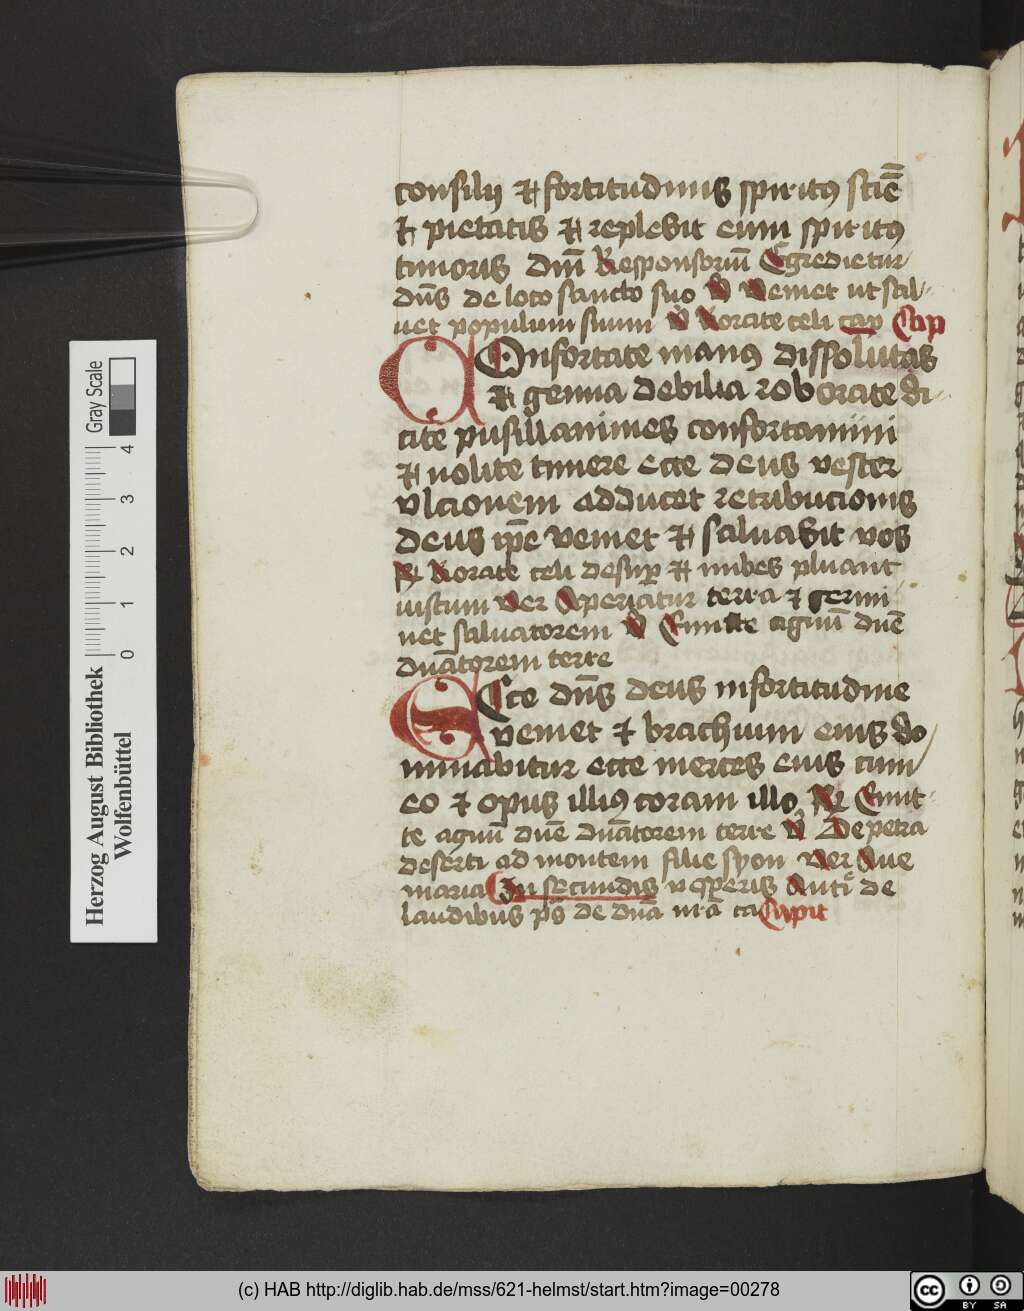 consilij et fortitudinis spiritus sciē
et pietatis et replebit eum spiritus
timoris dnī Responsoriū Egredietur
dn̄s de loco sancto suo V̄ Veniet ut sal-
uet populum suum V̄ Rorate celi cap Cap
COnfortate manus dissolutas
et genua debilia roborate di-
cite pusillanimes confortamini
et nolite timere ecce deus vester
vlcionem adducet retribucionis
deus ip̄e veniet et saluabit vos
R Rorate celi desup et nubes pluant
iustum ver Aperiatur terra et germi
net saluatorem V̄ Emitte agnū dn̄e
dn̄atorem terre
ECce dn̄s deus in fortitudine
veniet et brachium eius do
minabitur ecce merces eius cum
eo et opus illius coram illo R Emit-
te agnū dn̄e dn̄atorem terre V̄ De petra
deserti ad montem filie syon ver Aue
maria In secundis vesperis Anti de
laudibus ps̄ de dn̄a nr̄a ca Capit
Herzog August Bibliothek
Wolfenbüttel
Gray Scale
0 1 2 3 4
(c) HAB http://diglib.hab.de/mss/621-helmst/start.htm?image=00278
cc BY SA